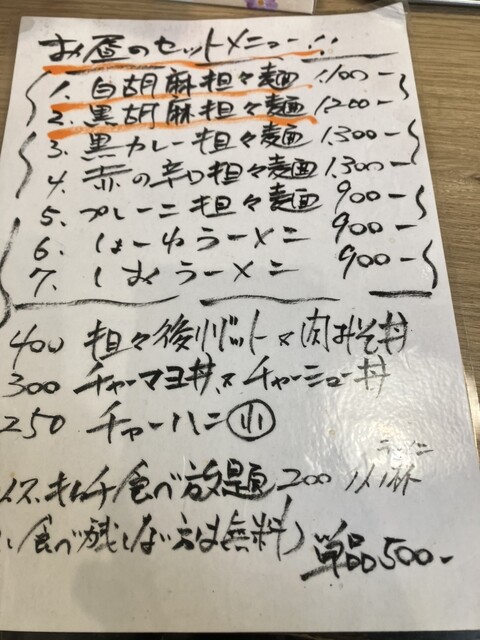 お昼のセットメニュー!!
1. 白胡麻担々麺 1,100ー
2. 黒胡麻担々麺 1,200ー
3. 黒カレー担々麺 1,300ー
4. 赤の辛口担々麺 1,300ー
5. プレーン担々麺 900ー
6. しょーゆラーメン 900ー
7. しおラーメン 900ー
400 担々後リゾット × 肉みそ丼
300 チャーマヨ丼 × チャーシュー丼
250 チャーハン 小
キムチ食べ放題 200
食べ残しない方は無料)
単品500ー